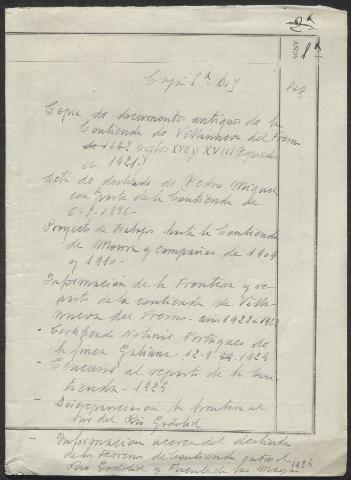 AÑOS
Copia de documentos antiguos de la
Contienda de Villanueva del Fresno
de 1642 siglos XVII y XVIII
en 1921.-
Acta de deslinde de Pedro Miguel
con parte de la Contienda de
Proyecto de trabajos hasta la Contienda
de Moura y campañas de 1909
y 1910.-
Información de la Frontera y re-
parto de la contienda de Villa-
nueva del Fresno - años 1922 a
- Certificado Notario Portugues de
la finca 1924
al reparto de la Con-
tienda.- 1924
- Discrepancias en la frontera al
Sur del Rio Godolid
- Informacion acerca del deslinde
de los terrenos de contienda entre el
Rio Godolid y 1924